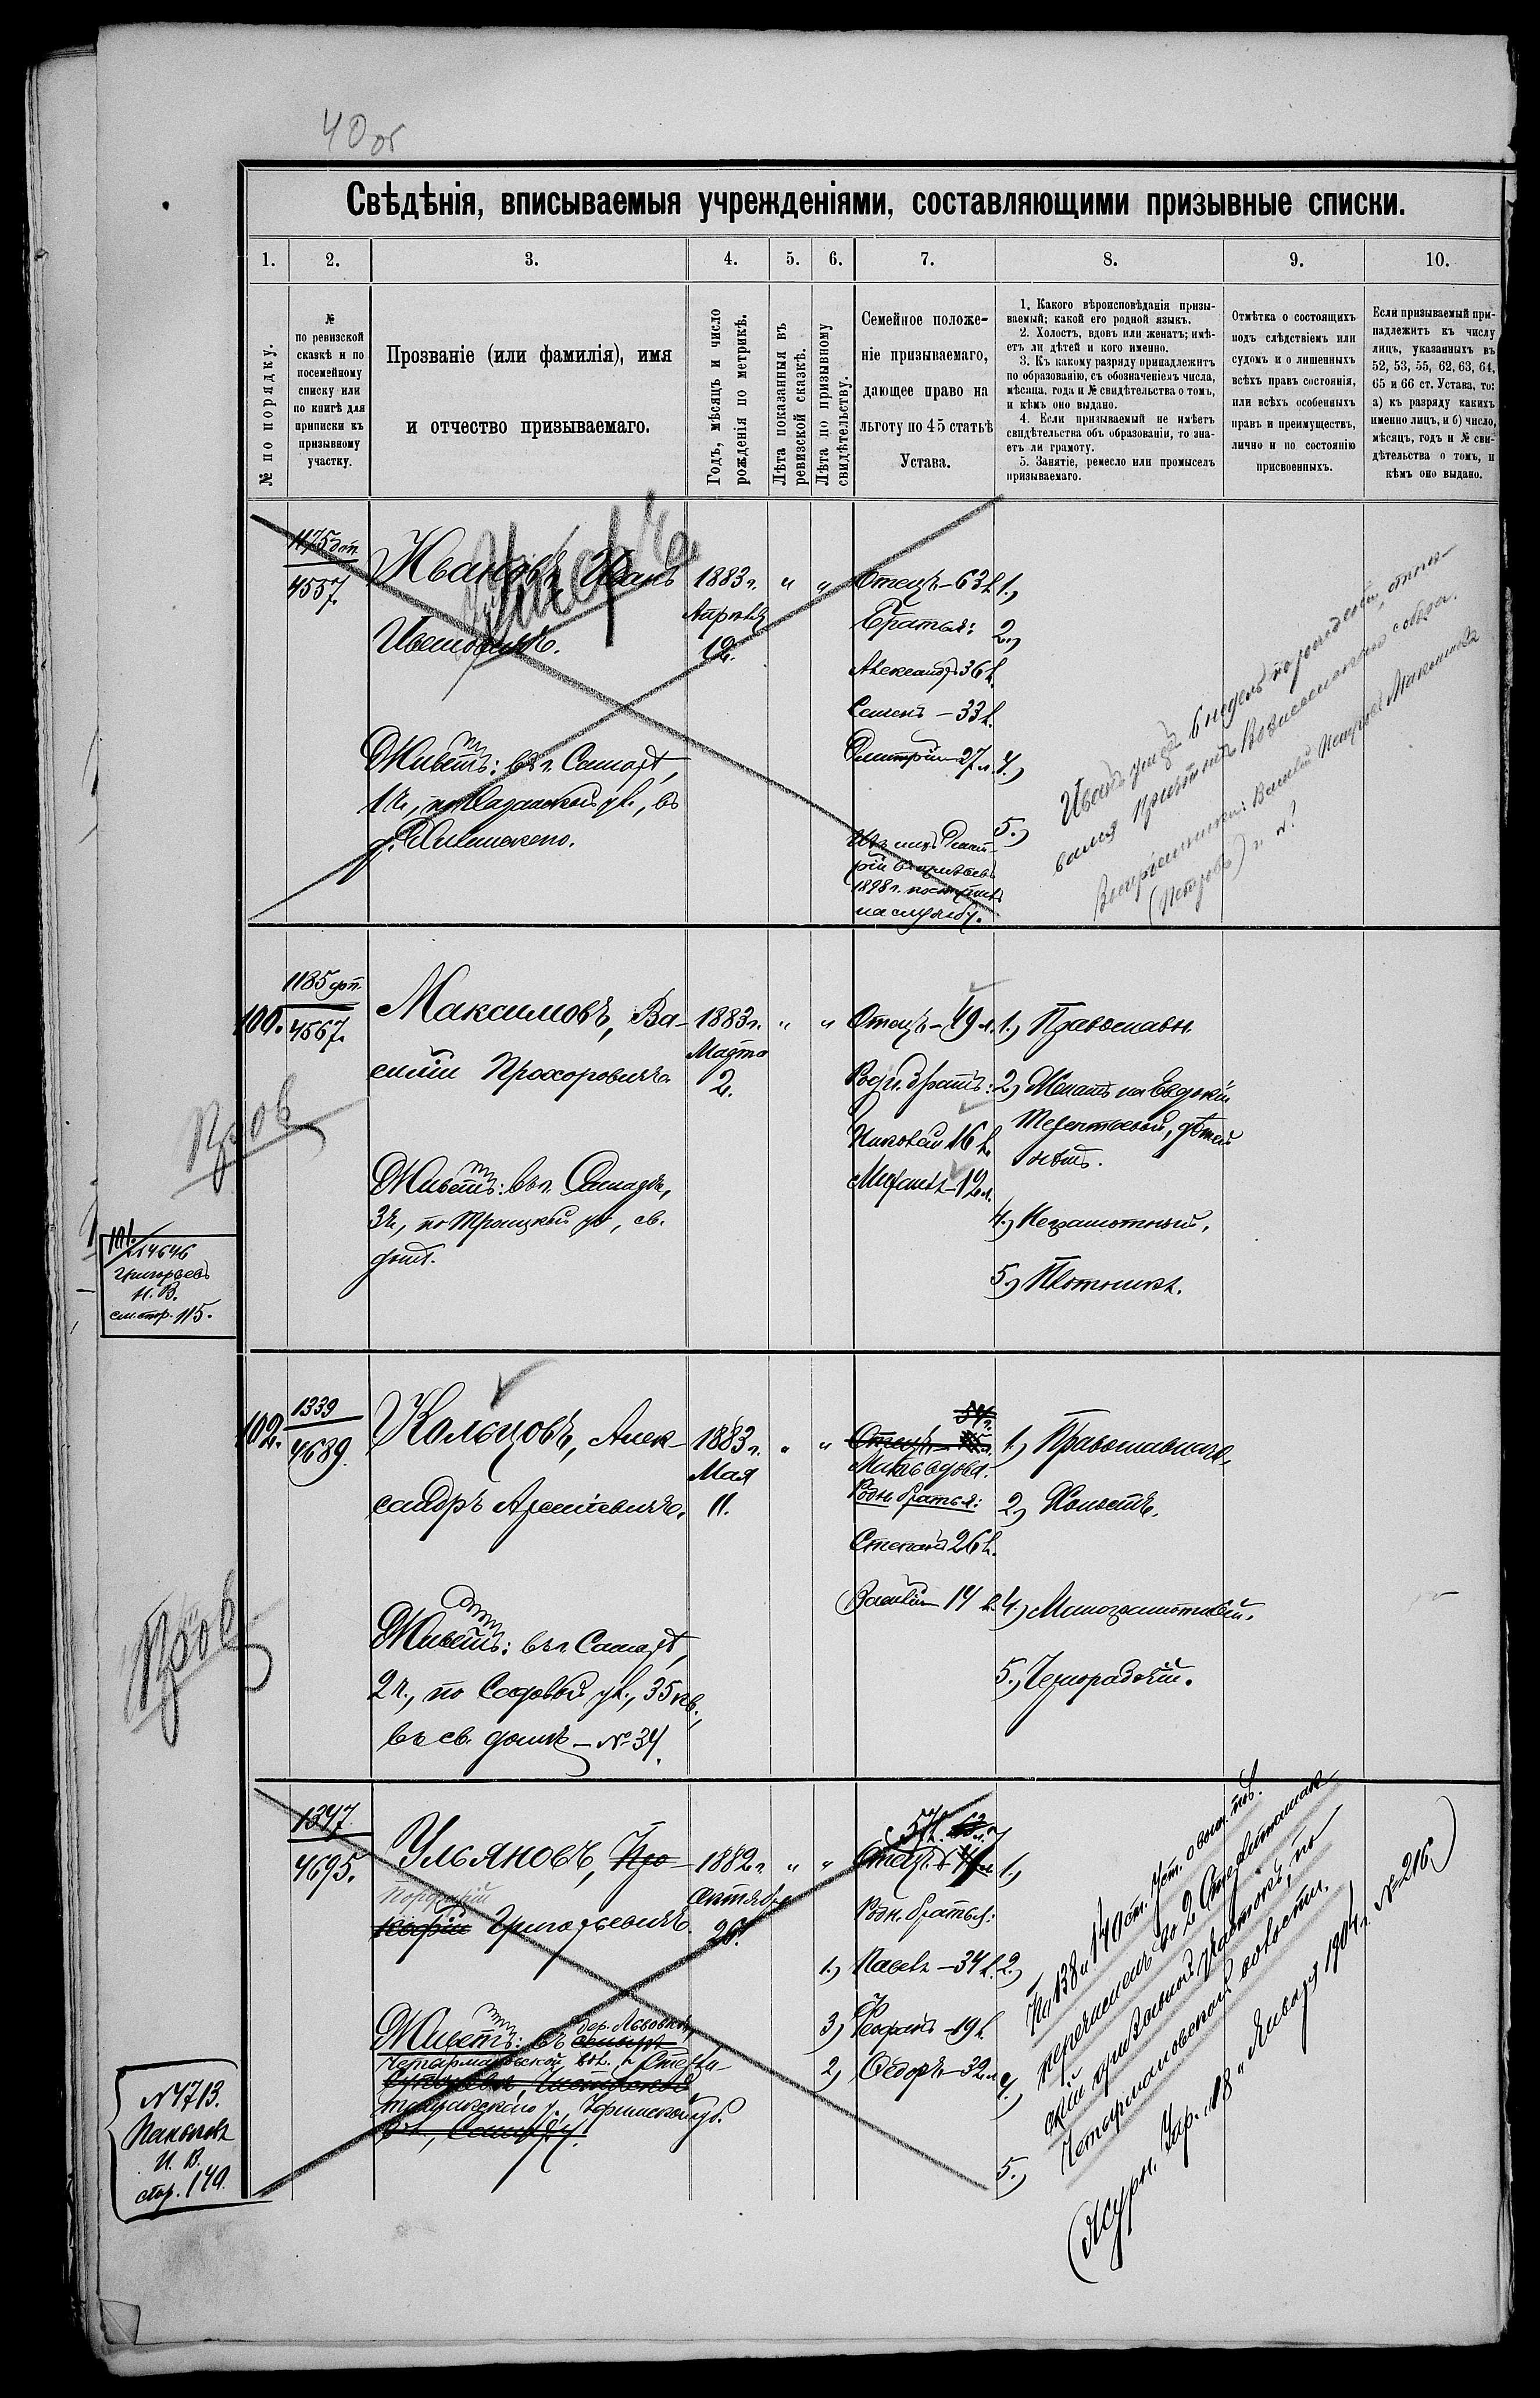 40 об
Свѣдѣнія, вписываемыя учрежденіями, составляющими призывные списки.
1. 2. 3. 4. 5. 6. 7. 8. 9. 10.
№ по порядку.
№
по ревизской
сказкѣ и по
посемейному
списку или
по книгѣ для
приписки къ
призывному
участку.
Прозваніе (или фамилія), имя
и отчество призываемаго.
Годъ, мѣсяцъ и число
рожденія по метрикѣ.
Лѣта показанныя въ
ревизской сказкѣ.
Лѣта по призывному
свидѣтельству.
Семейное положе-
ніе призываемаго,
дающее право на
льготу по 45 статьѣ
Устава.
1. Какого вѣроисповѣданія призы-
ваемый; какой его родной языкъ.
2. Холостъ, вдовъ или женатъ; имѣ-
етъ ли дѣтей и кого именно.
3. Къ какому разряду принадлежитъ
по образованію, съ обозначеніемъ числа,
мѣсяца, года и № свидѣтельства о томъ,
и кѣмъ оно выдано.
4. Если призываемый не имѣетъ
свидѣтельства объ образованіи, то зна-
етъ ли грамоту.
5. Занятіе, ремесло или промыселъ
призываемаго.
Отмѣтка о состоящихъ
подъ слѣдствіемъ или
судомъ и о лишенныхъ
всѣхъ правъ состоянія,
или всѣхъ особенныхъ
правъ и преимуществъ,
лично и по состоянію
присвоенныхъ.
Если призываемый при-
надлежитъ къ числу
лицъ, указанныхъ въ
52, 53, 55, 62, 63, 64,
65 и 66 ст. Устава, то:
а) къ разряду какихъ
именно лицъ, и б) число,
мѣсяцъ, годъ и № сви-
дѣтельства о томъ, и
кѣмъ оно выдано.
1175 доп.
4557.
Ивановъ, Иванъ
Ивановичъ.
Умеръ
1883 г.
Апрѣля
12.
" "
Отецъ – 63 л.
Братья:
Александръ 36 л.
Семенъ – 33 л.
Дмитрій – 27 л.
Изъ нихъ Дмит-
рій
1898 г. поступилъ
на службу.
1.)
2.)
4.)
5.)
Живетъ: въ г. Самарѣ,
1 ч., по Казанской ул., въ
д.
Иванъ умеръ 6 недѣль
Воспріемники: Василій Петровъ Максимовъ
(Петровъ) и
100.
1185 доп.
4567.
Максимовъ, Ва-
силій Прохоровичъ
1883 г.
Марта
2.
" "
Отецъ – 49 л.
Родн. братъ:
Николай 16 л.
Михаилъ – 12 л.
1.) Православн.
2.) Женатъ на Евдокіи
Терентьевой, дѣтей
нѣтъ.
4.) Неграмотный.
5.) Плотникъ.
Живетъ: въ г. Самарѣ,
3 ч., по Троицкой ул., св.
домъ.
Пров
101.
4646
Григорьевъ
И. В.
см. стр. 115.
102.
1339
4689.
Кольцовъ, Алек-
сандръ Арсеніевичъ.
1883 г.
Мая
11.
" "
54 г.
Отецъ –
Мать вдова.
Родн. братья:
Степанъ 26 л.
Василій – 14 л.
1.) Православнаго.
2.) Холостъ.
4.) Малограмотный.
5.) Чернорабочій.
Живетъ: въ г. Самарѣ,
2 ч., по Садовой ул., 35 кв.,
въ св. домѣ – № 34.
Пров
1347.
4695.
Ульяновъ, Про-
Порфирій
кофій Григорьевичъ.
1882 г.
Сентября
26.
" "
57 л. 63 л.
Отецъ
Родн. братья:
1.) Павелъ – 34 л.
3.) Феофанъ – 19 л.
2.) Ѳедоръ – 32 л.
1.)
2.)
4.)
5.)
Живетъ: въ
дер. Львовкѣ,
Четырмановской вол. Стерли-
тамакскаго у., Уфимской губ.
По 138 и 140 ст. Уст. о воин. пов.
перечисленъ во 2 Стерлитамак-
скій призывной участокъ, по
Четырмановской волости.
(Журн. Зар. "18" Января 1904 г. № 216)
№ 4713.
И. В.
стр. 140.